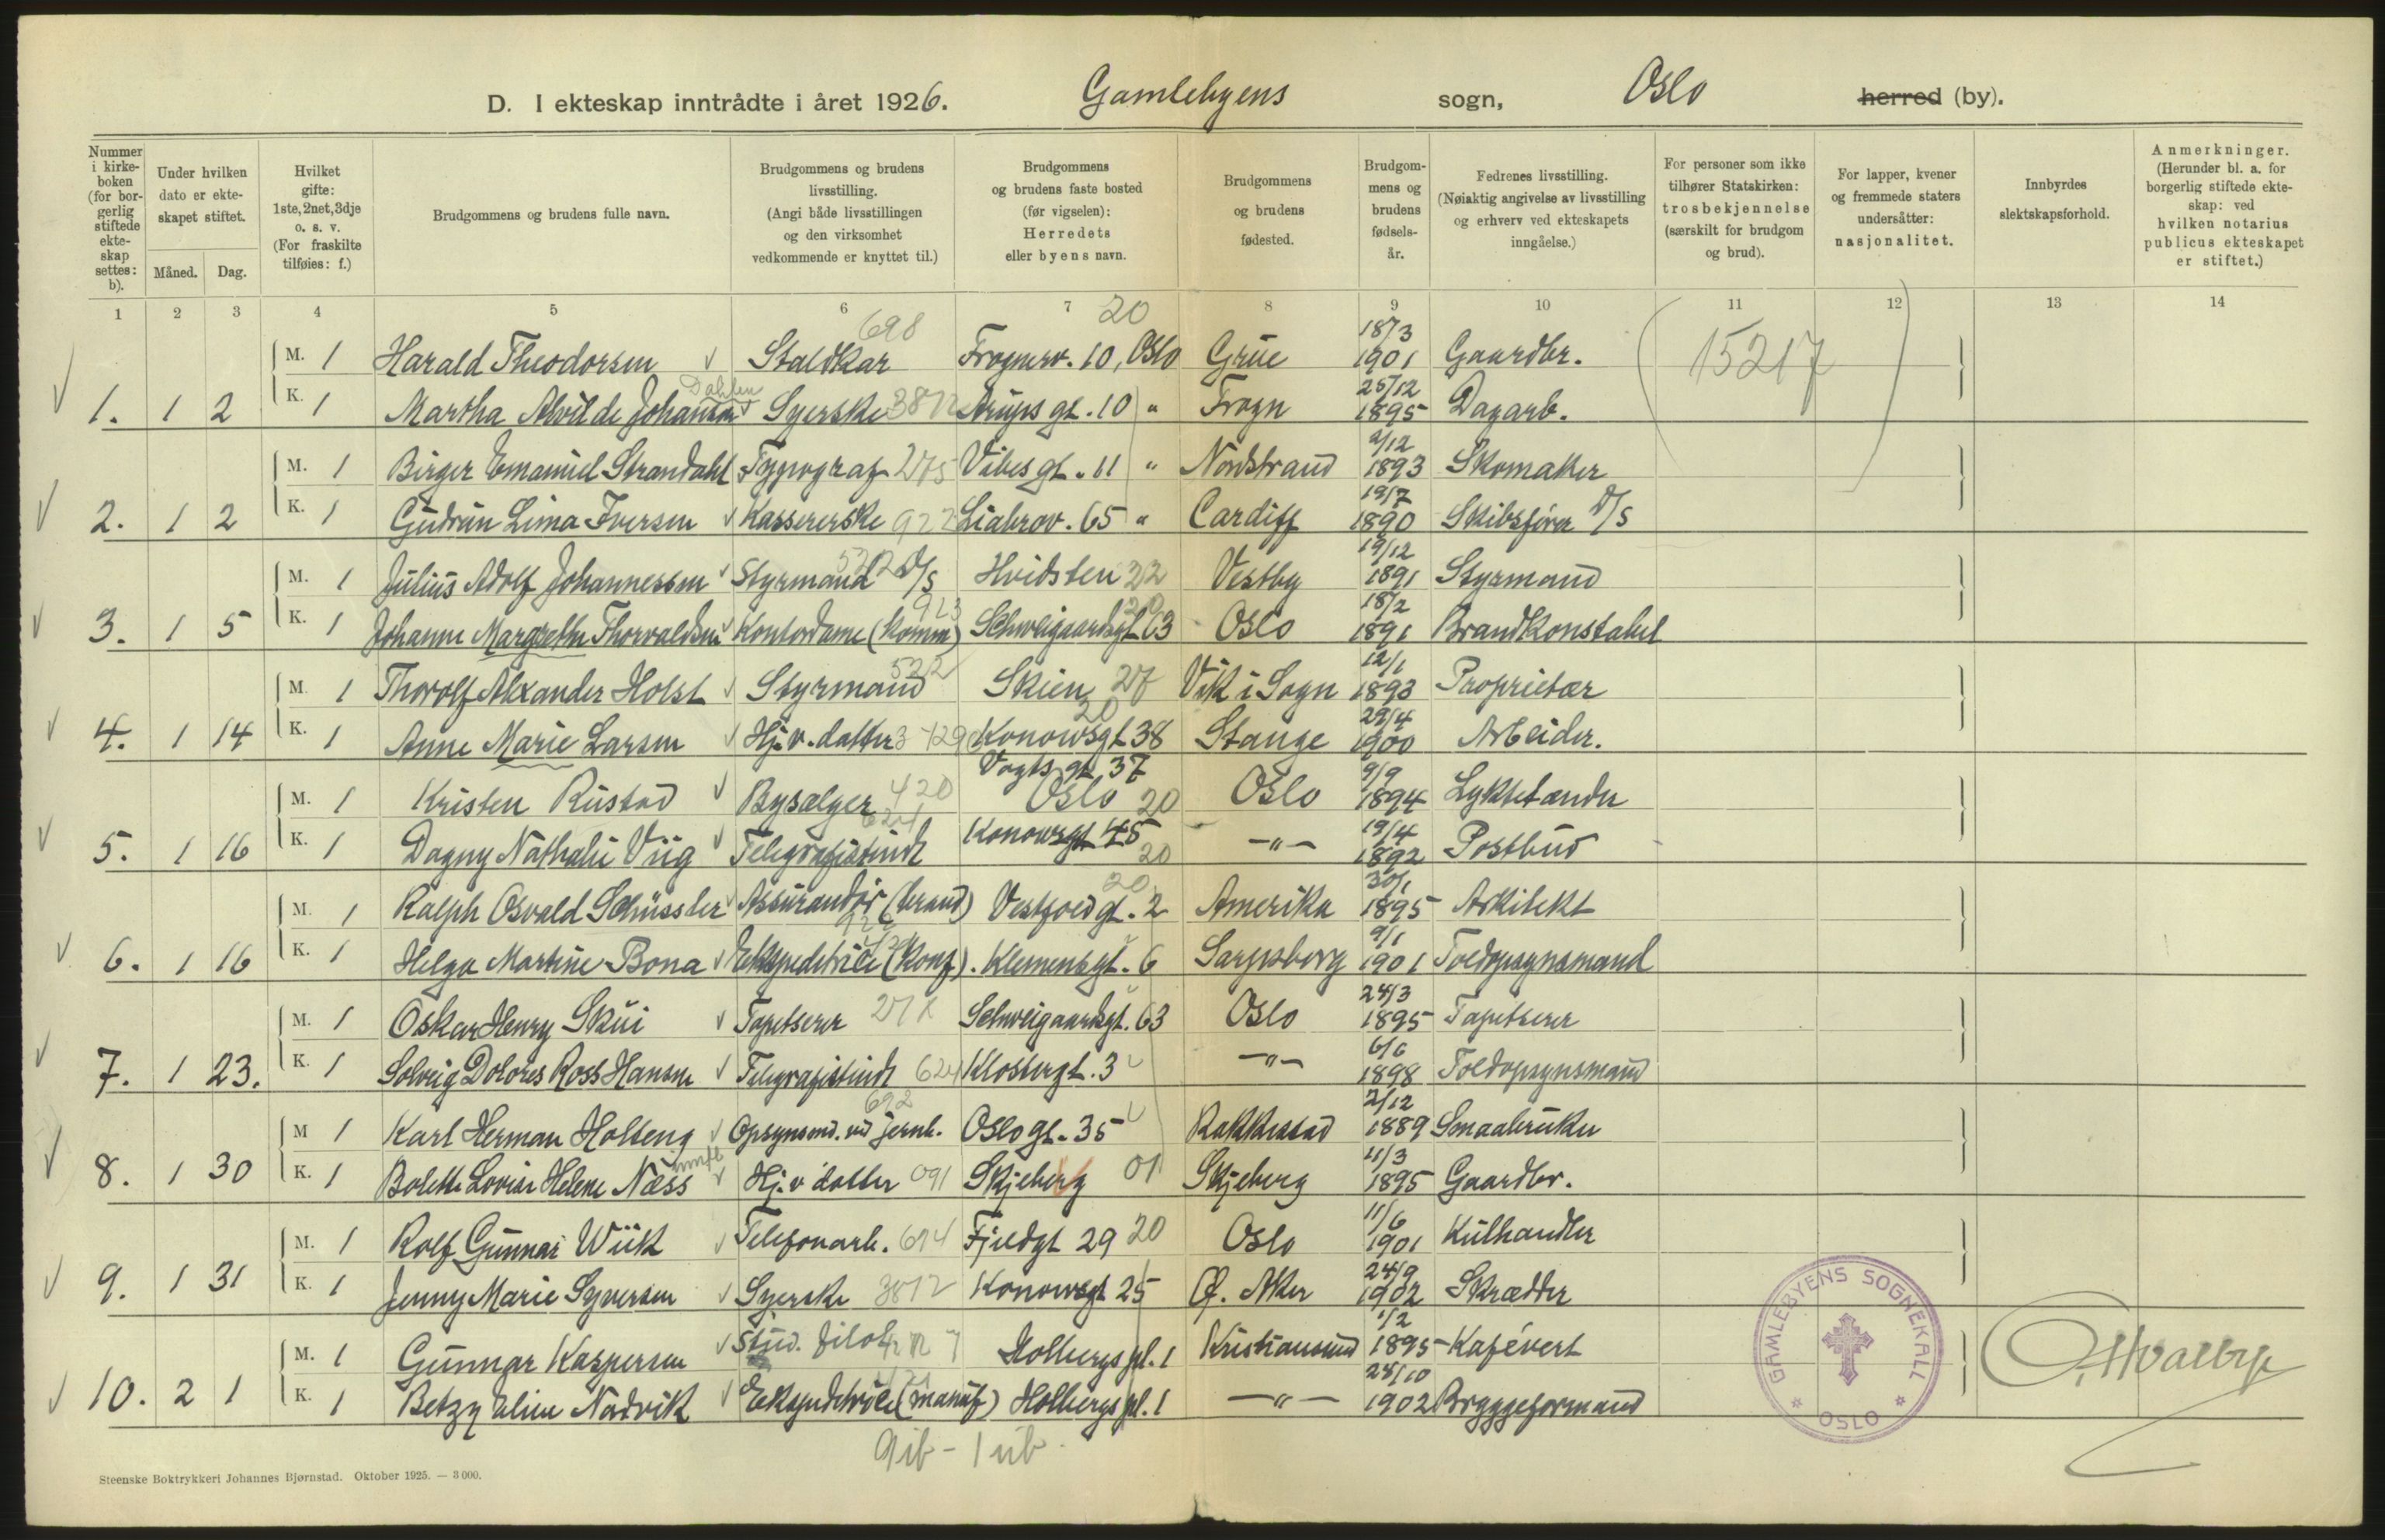 D. I ekteskap inntrådte i året 1926. Gamlebyens sogn, Oslo herred (by).
Nummer i kirkeboken (for borgerlig stiftede ekteskap settes: b).
Under hvilken dato er ekteskapet stiftet.
Måned. Dag.
Hvilket gifte: 1ste, 2net, 3dje o. s. v. (For fraskilte tilføies: f.)
Brudgommens og brudens fulle navn.
Brudgommens og brudens livsstilling. (Angi både livsstillingen og den virksomhet vedkommende er knyttet til.)
Brudgommens og brudens faste bosted (før vigselen): Herredets eller byens navn.
Brudgommens og brudens fødested.
Brudgommens og brudens fødselsår.
Fedrenes livsstilling. (Nøiaktig angivelse av livsstilling og erhverv ved ekteskapets inngåelse.)
For personer som ikke tilhører Statskirken: trosbekjennelse (særskilt for brudgom og brud).
For lapper, kvener og fremmede staters undersåtter: nasjonalitet.
Innbyrdes slektskapsforhold.
Anmerkninger. (Herunder bl. a. for borgerlig stiftede ekteskap: ved hvilken notarius publicus ekteskapet er stiftet.)
1 2 3 4 5 6 7 8 9 10 11 12 13 14
698 20 18/3
M. 1 Harald Theodorsen Staldkar Frognerv. 10, Oslo Grue 1901 Gaardbr. (15217)
Dahlen 25/12
1. 1 2 K. 1 Martha Alvilde Johansen Syerske 3872 Arups gt. 10 " Frogn 1895 Dagarb.
2/12
M. 1 Birger Emanuel Strandahl Typograf 275 Vibes gt. 11 " Nordstrand 1893 Skomaker
19/7
2. 1 2 K. 1 Gudrun Lima Iversen Kassererske 922 Liabrov. 65 " Cardiff 1890 Skibsfører D/S
19/12
M. 1 Julius Adolf Johannessen Styrmand 522 D/S Hvidsten 22 Vestby 1891 Styrmand
923 20 18/2
3. 1 5 K. 1 Johanne Margrethe Thorvaldsen Kontordame (komm) Schweigaardsgt 63 Oslo 1891 Brandkonstabel
522 12/1
M. 1 Thorolf Alexander Holst Styrmand Skien 27 Vik i Sogn 1893 Proprietær
20 29/4
4. 1 14 K. 1 Anne Marie Larsen Hj.v. datter Konowsgt 38 Stange 1900 Arbeider.
Vogts gt. 37 9/9
M. 1 Kristen Rustad Bysælger 420 Oslo 20 Oslo 1894 Lyktetænder
624 19/4
5. 1 16 K. 1 Dagny Nathalie Viig Telegrafistinde Konowsgt 45 20 -"- 1892 Postbud
20 30/1
M. 1 Ralph Osvald Schüssler Assurandør (brand) Vestfold gt. 2 Amerika 1895 Arkitekt
9/1
6. 1 16 K. 1 Helga Martine Bona Ekspeditrice (konf). Klemensgt. 6 Sarpsborg 1901 Toldopsynsmand
24/3
M. 1 Oskar Henry Skui Tapetserer Schweigaardsgt. 63 Oslo 1895 Tapetserer
6/6
7. 1 23. K. 1 Solveig Dolores Ross Hansen Telegrafistinde 624 Klostergt. 3 -"- 1898 Toldopsynsmand
692 2/12
M 1 Karl Herman Holteng Opsynsmd. ved jernb. Oslo gt. 35 Rakkestad 1889 Smaabruker
11/3
8. 1 30 K. 1 Bolette Lovise Helene Næss Hj.v. datter 091 Skjeberg 01 Skjeberg 1895 Gaardbr.
11/6
M. 1 Rolf Gunnar Wiik Telefonarb. 614 Fjeldgt 29 20 Oslo 1901 Kulhandler
24/9
9. 1 31 K. 1 Jenny Marie Syversen Syerske 3872 Konowsgt 25 Ø. Aker 1902 Skrædder
1/2
M. 1 Gunnar Kaspersen Stud. filol. Holbergs pl. 1 Kristiansund 1895 Kafévert
28/10
10. 2 1 K. 1 Betzy Eline Nordvik Ekspeditrice (manuf) Holbergs pl. 1 -"- 1902 Bryggeformand
GAMLEBYENS SOGNEKALL * OSLO *
9 ib - 1 ub.
Steenske Boktrykkeri Johannes Bjørnstad. Oktober 1925. — 3 000.